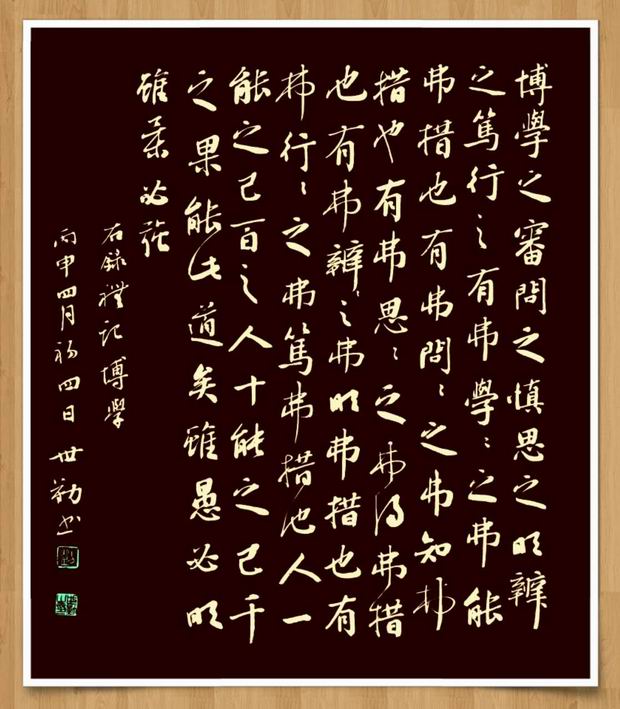 博學之審問之慎思之明辨
之篤行之有弗學〻之弗能
弗措也有弗問〻之弗知弗
措也有弗思〻之弗得弗措
也有弗辨〻之弗明弗措也有
弗行〻之弗篤弗措也人一
能之己百之人十能之己千
之果能此道矣雖愚必明
雖柔必強
右錄禮記博學
丙申四月初四日世勤书